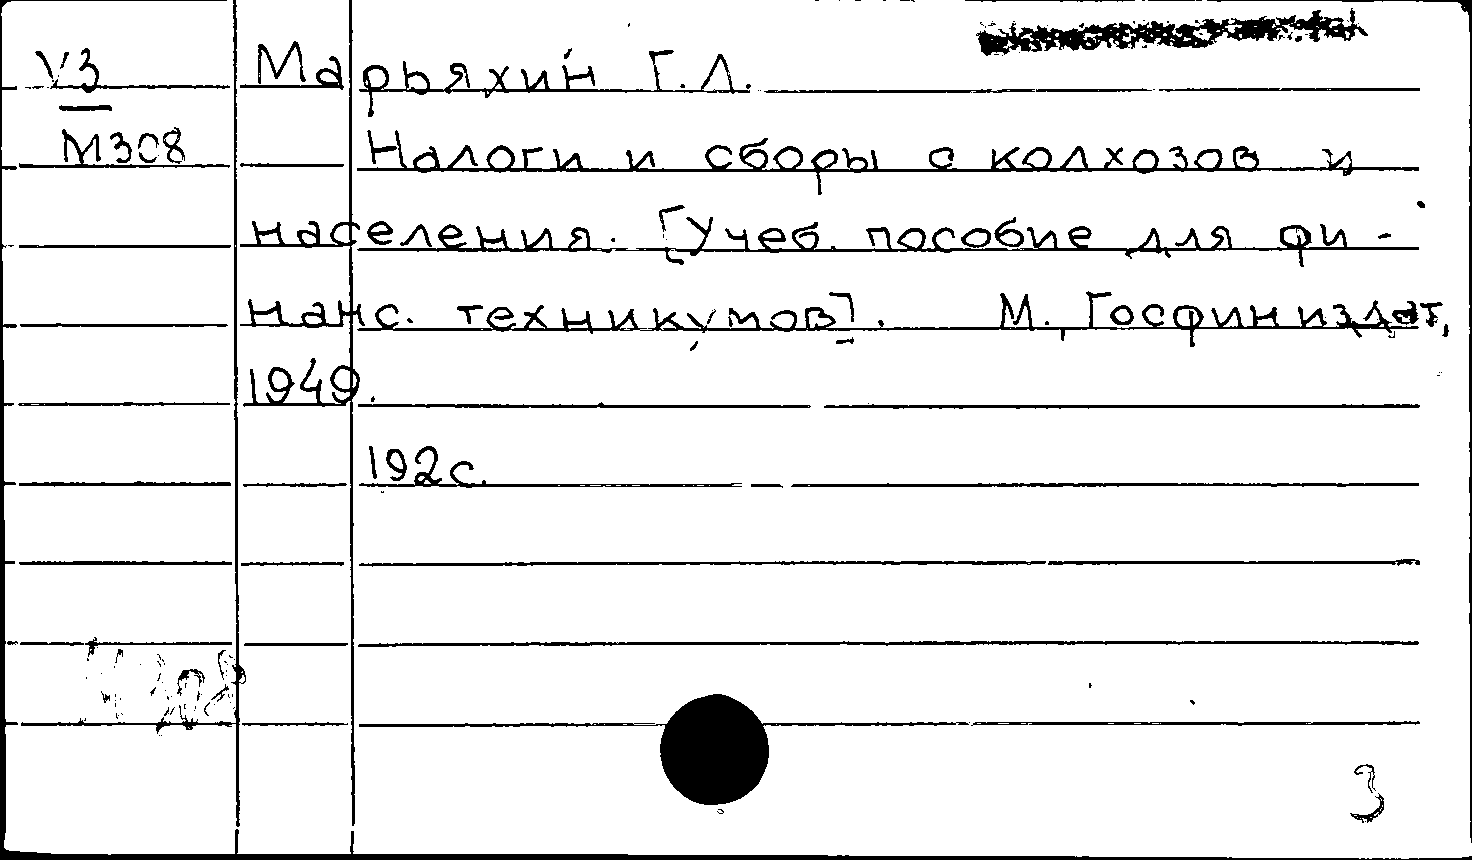 У3 Марьяхин Г.Л.
М308 Налоги и сборы с колхозов и
населения. [Учеб. пособие для фи-
нанс. техникумов]. М., Госфиниздат,
1949.
192 с.
3